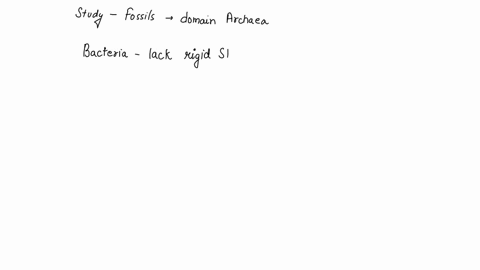 Study - Fossils → domain Archaea
Bacteria - lack rigid Sl